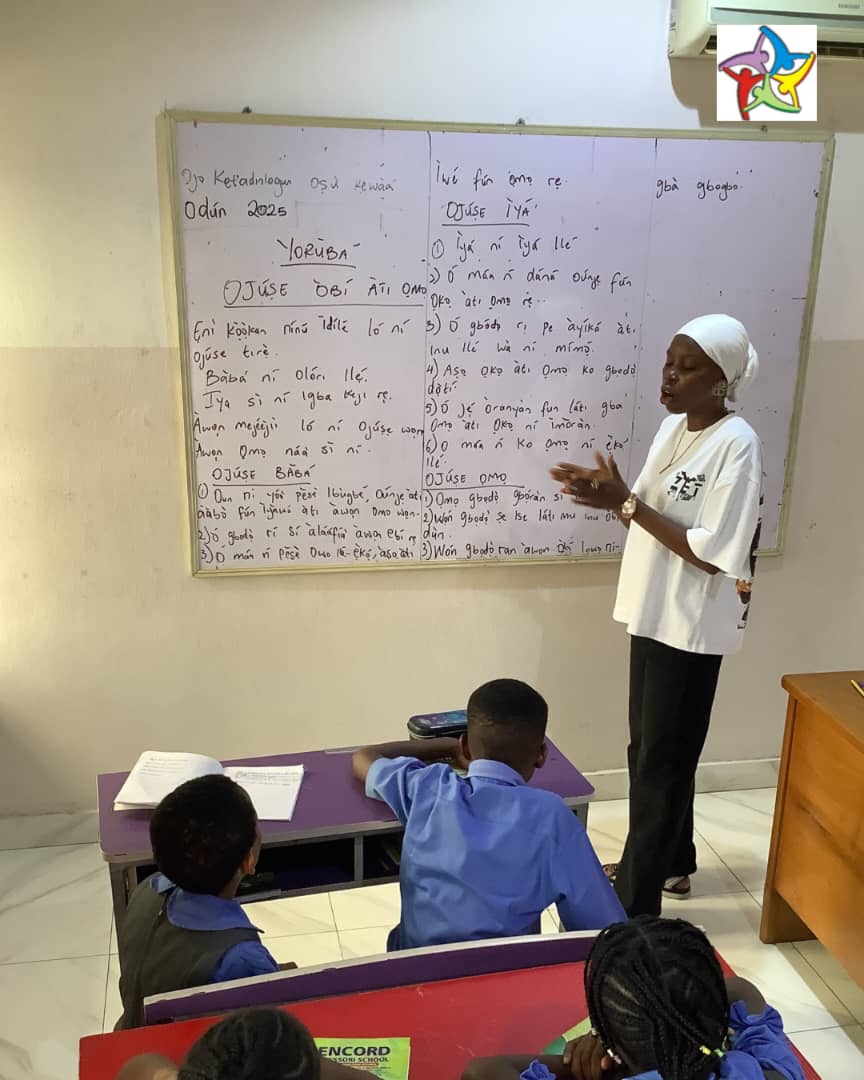 Ojo Ketadnlogun oṣù kewàá
Odún 2025
YORÙBÁ
OJÚṢE ÒBÍ ÀTI ỌMO
Ẹni kọ̀ọ̀kan nínú ìdílé ló ní
ojúse tirẹ̀.
Bàbá ní olórí Ilé.
Iya sì ní igba keji rẹ.
Àwọn mejéèjì ló ní ojúṣe wọn
Àwọn ọmọ náà sì ní.
OJÚṢE BÀBÁ
① Oun ni yóò pèsè Ibùgbé, oúnjẹ àti
ààbò fún ìyàwó àti àwọn ọmọ wọn.
2) ó gbọdọ̀ rí sí àlàáfíà àwọn ẹbí rẹ
3) Ọ máa ń pèsè owó ilé-ẹ̀kọ́, àṣọ àti
Ìwé fún ọmọ rẹ.
OJÚṢE ÌYÁ
① Ìyá ní Ìyá Ilé
2) Ó máa ń dáná oúnjẹ fún
ọkọ àti ọmọ rẹ̀..
3) Ó gbọ́dọ̀ rí pe àyíká àti
inu ilé wà ní mímọ́.
4) Aṣọ ọkọ àti ọmọ ko gbọdọ̀
dọ̀tí
5) Ó jẹ́ ọ̀ranyàn fun láti gba
ọmọ àti ọkọ ní ìmọ̀ràn.
6) Ọ máa ń kọ ọmọ ní ẹ̀kọ́
ilé.
OJÚṢE ỌMỌ
1) Ọmọ gbọdọ̀ gbọ́ràn sí
2) Wọ́n gbọdọ̀ ṣe iṣe láti mu inu òbí
dùn.
3) Wọ́n gbọdọ̀ ran àwọn òbí lọ́wọ́ ní
gbà gbogbo.
ENCORD
SSORI SCHOOL